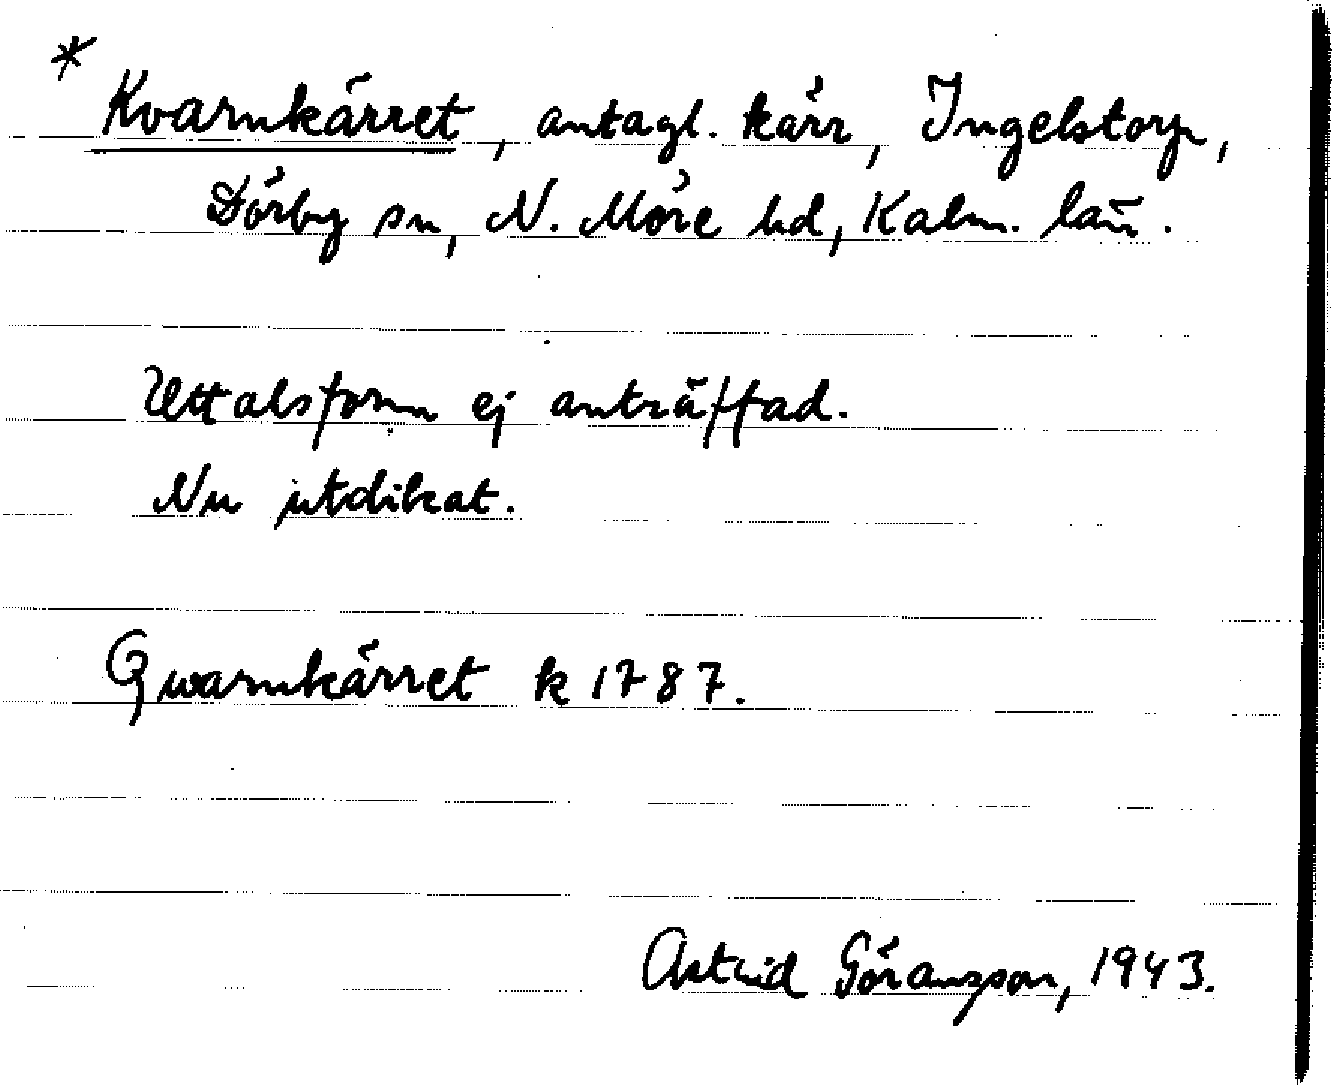 *
Kvarnkärret, antagl. kärr, Ingelstorp,
Dörby sn, N. Möre hd, Kalm. län.
Uttalsform ej anträffad.
Nu utdikat.
Qwarnkärret k 1787.
Astrid Göransson, 1943.